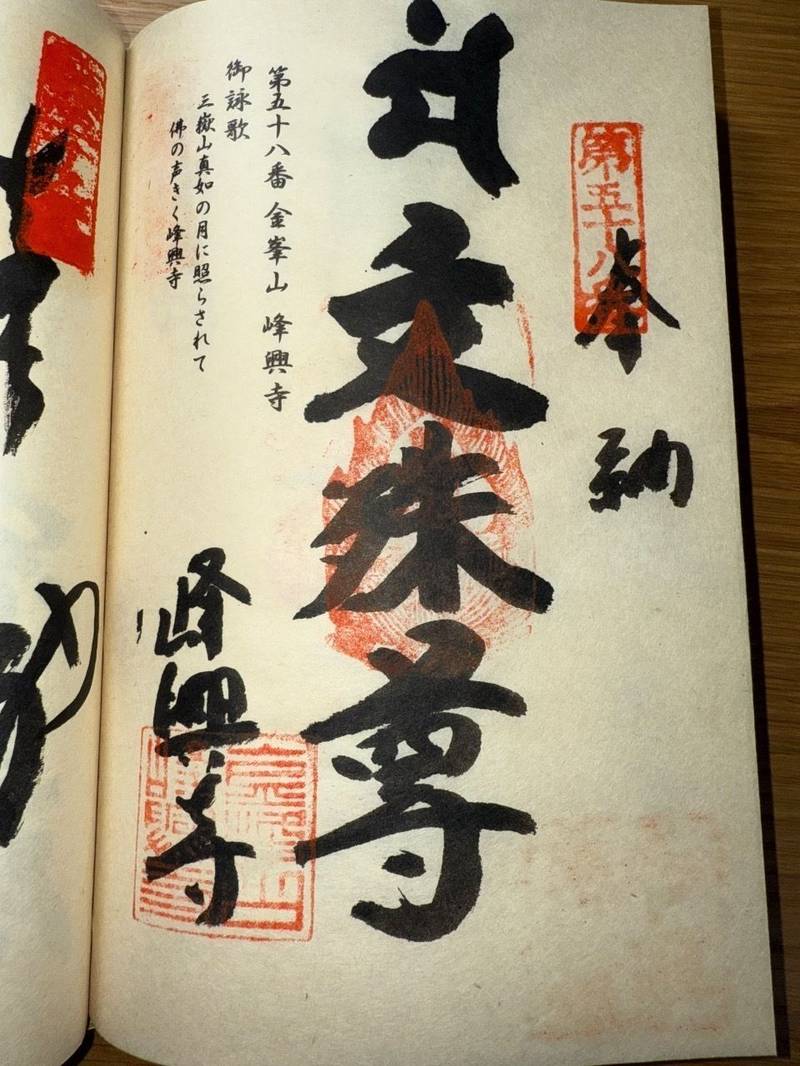 第五十八番
奉納
文殊尊
第五十八番 金峯山 峰興寺
御詠歌
三嶽山真如の月に照らされて
佛の声きく峰興寺
峰興寺